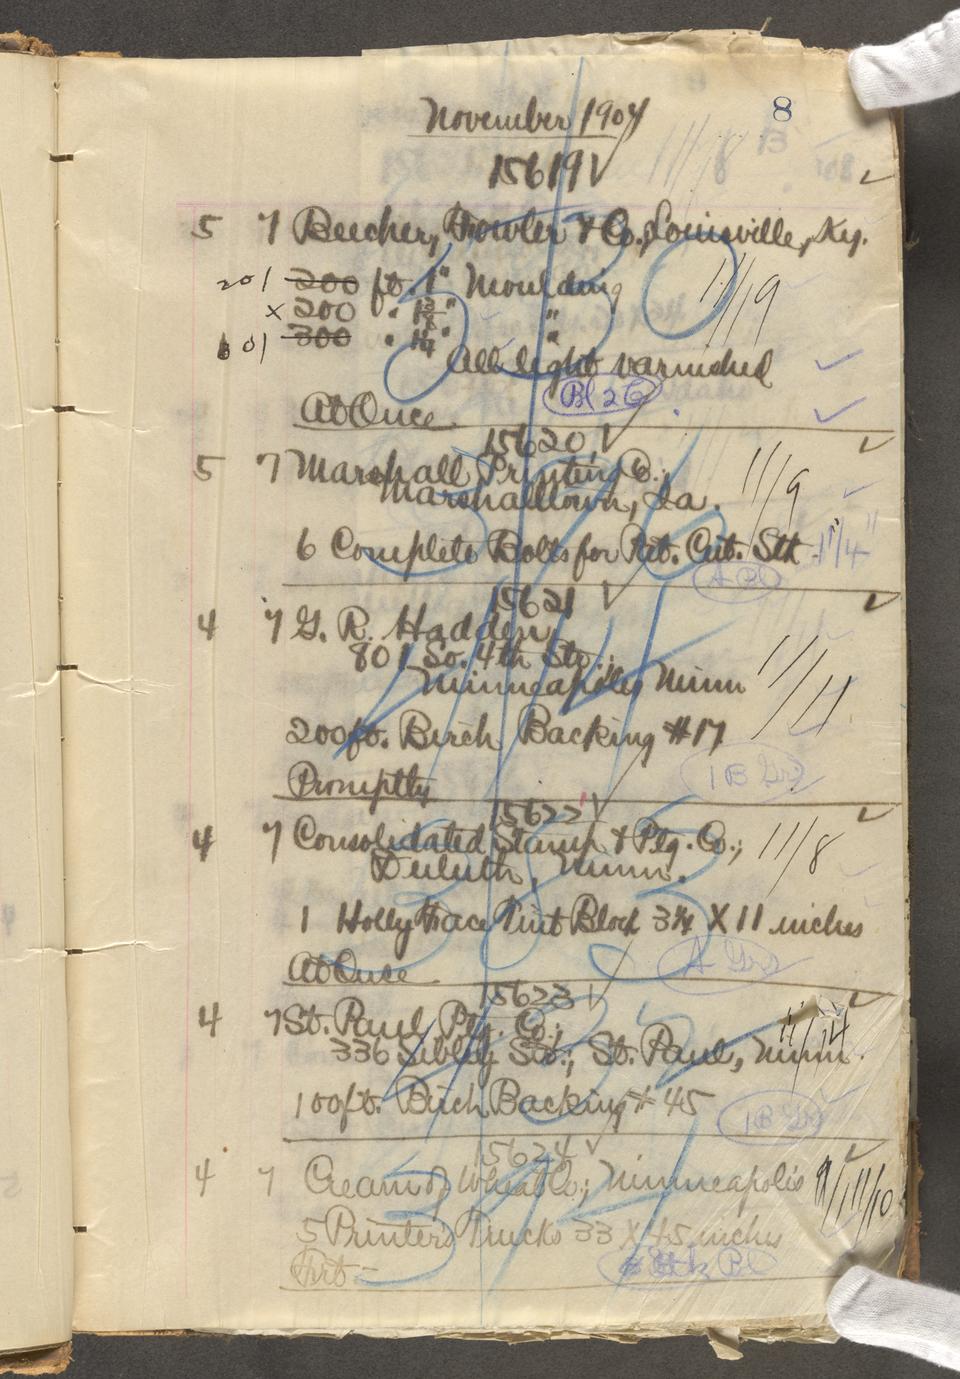 November 1904
8
15619 ✓
5 7 Beecher, Fowler & Co., Louisville, Ky.
201 200 ft. 1" Moulding 11/19
x 200 " 1 3/8" "
601 300 " 1 1/4" "
All light varnished
At Once
Bl 26
15620 ✓
5 7 Marshall Printing Co.,
Marshalltown, Ia. 11/9
6 Complete Bolts for Pat. Cut. Stk 1 1/4"
A Bl
15621 ✓
4 7 G. R. Hadden,
801 So. 4th St.;
Minneapolis Minn 11/11
200 ft. Birch Backing #17
1 B Gr
Promptly
15622 ✓
4 7 Consolidated Stamp & Ptg. Co.; 11/8
Duluth, Minn.
1 Holly Face Tint Block 3 1/4 X 11 inches
At Once
15623 ✓
4 7 St. Paul Ptg. Co.; 11/14
336 Sibley St.; St. Paul, Minn.
100 ft. Birch Backing # 45
1 B Gr
15624 ✓
4 7 Cream of Wheat Co.; Minneapolis 11/10
5 Printers Trucks 33 X 45 inches
Frt -